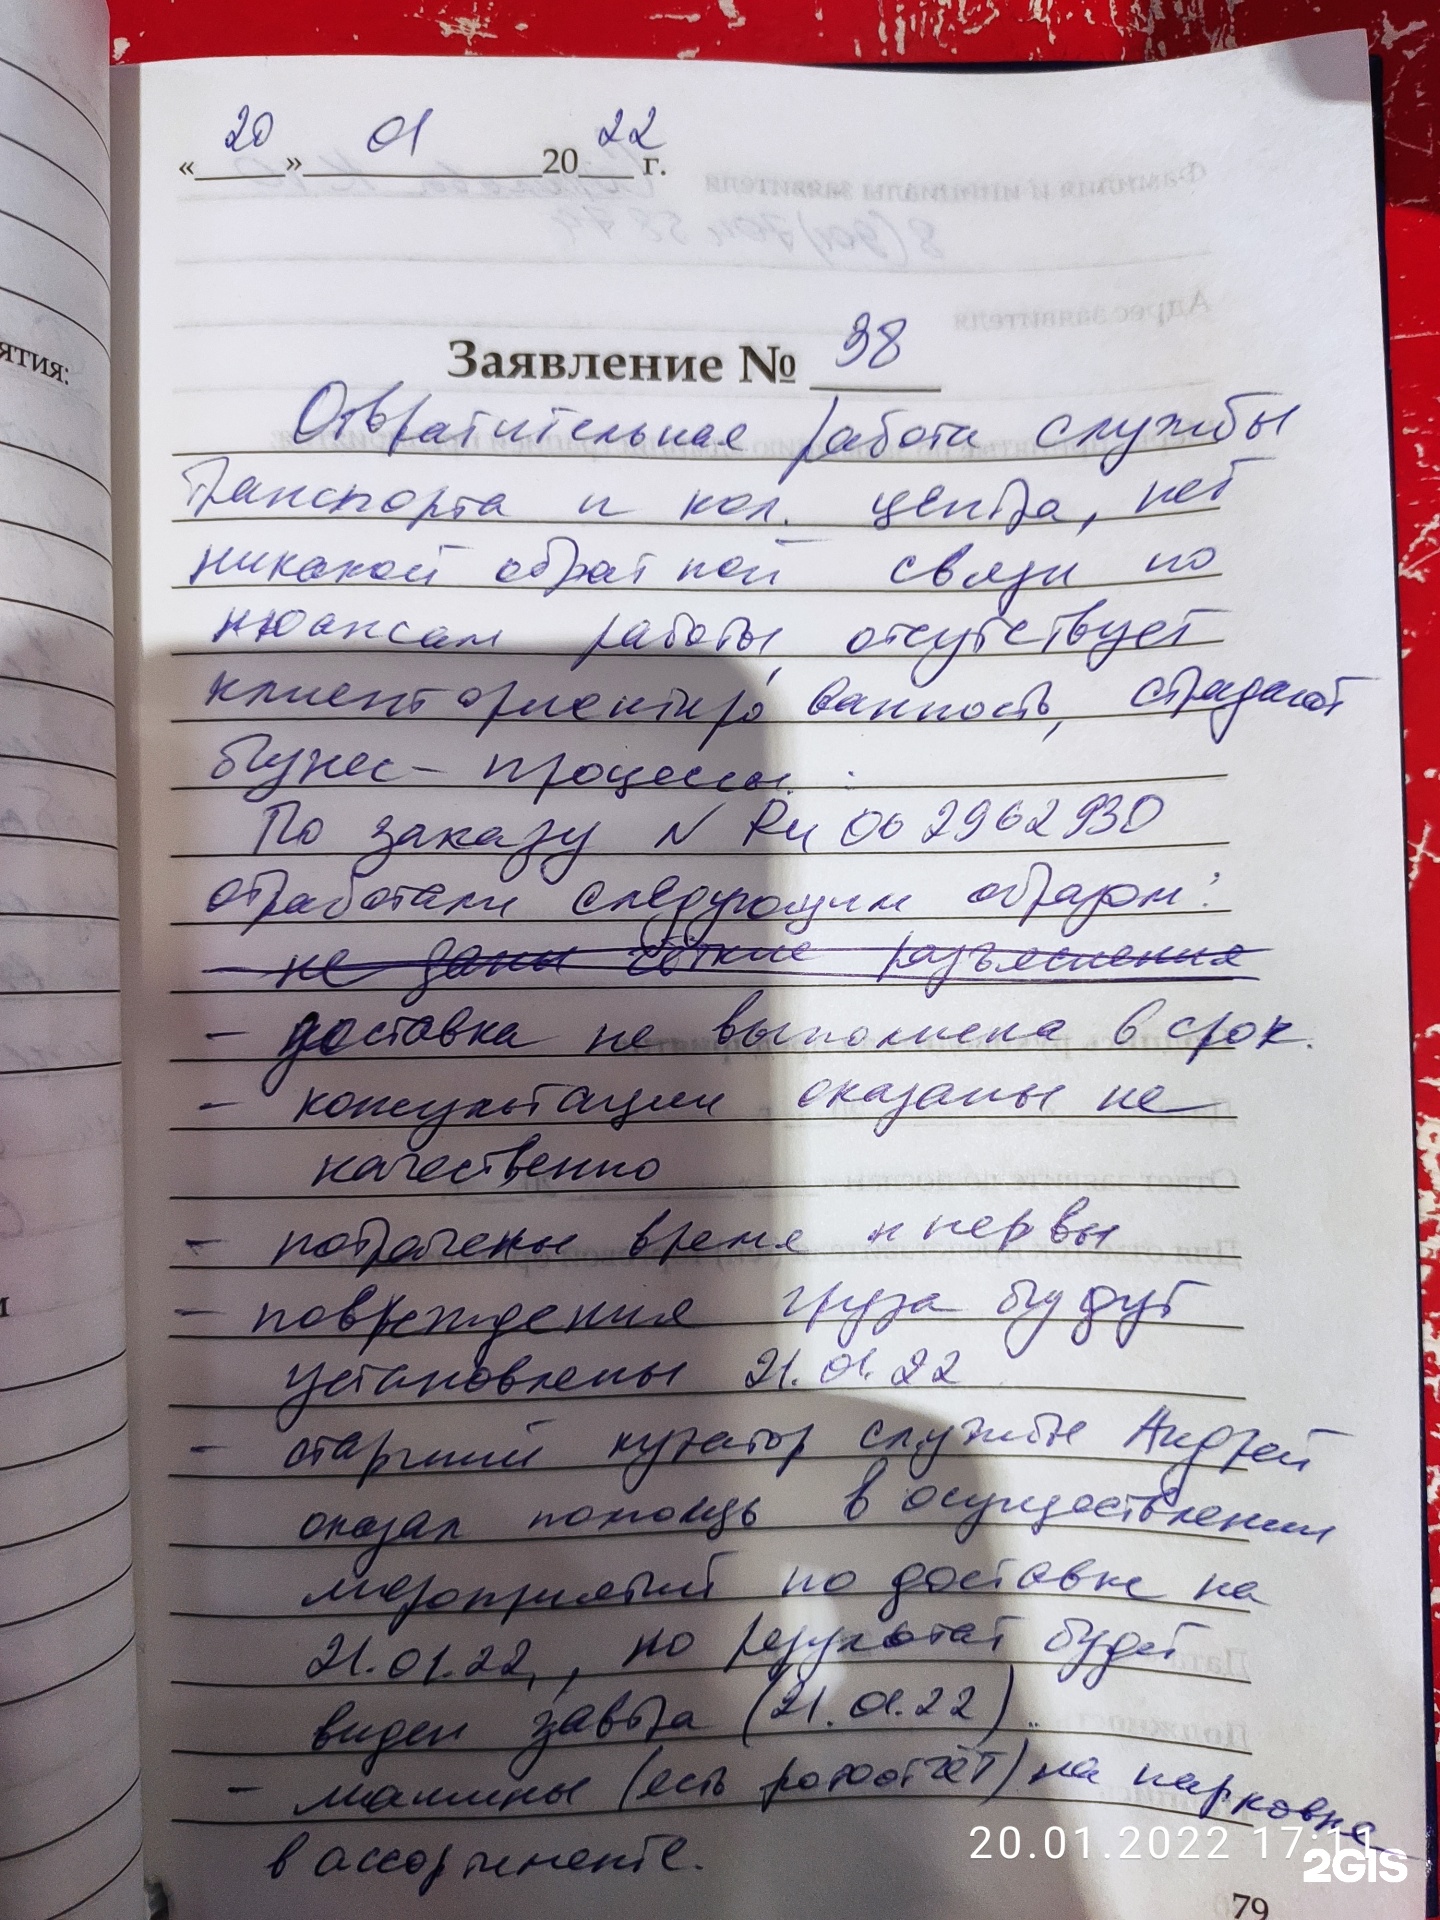 « 20 » 01 2022 г.
Заявление № 38
Отвратительная работа службы
транспорта и кол. центра, нет
никакой обратной связи по
нюансам работы, отсутствует
клиенториентиро ванность, страдают
бизнес- процессы.
По заказу N Ru 06 2962930
отработали следующим образом:
- не даны чёткие разъяснения
- доставка не выполнена в срок.
- консультации оказаны не
качественно
- потрачены время и нервы
- повреждения груза будут
установлены 21.01.22
- старший куратор службы Андрей
оказал помощь в осуществлении
мероприятий по доставке на
21.01.22, но результат будет
виден завтра (21.01.22).
- машины (есть фотоотчёт) на парковке
в ассортименте.
20.01.2022 17:11
2GIS
79
ятия:
и